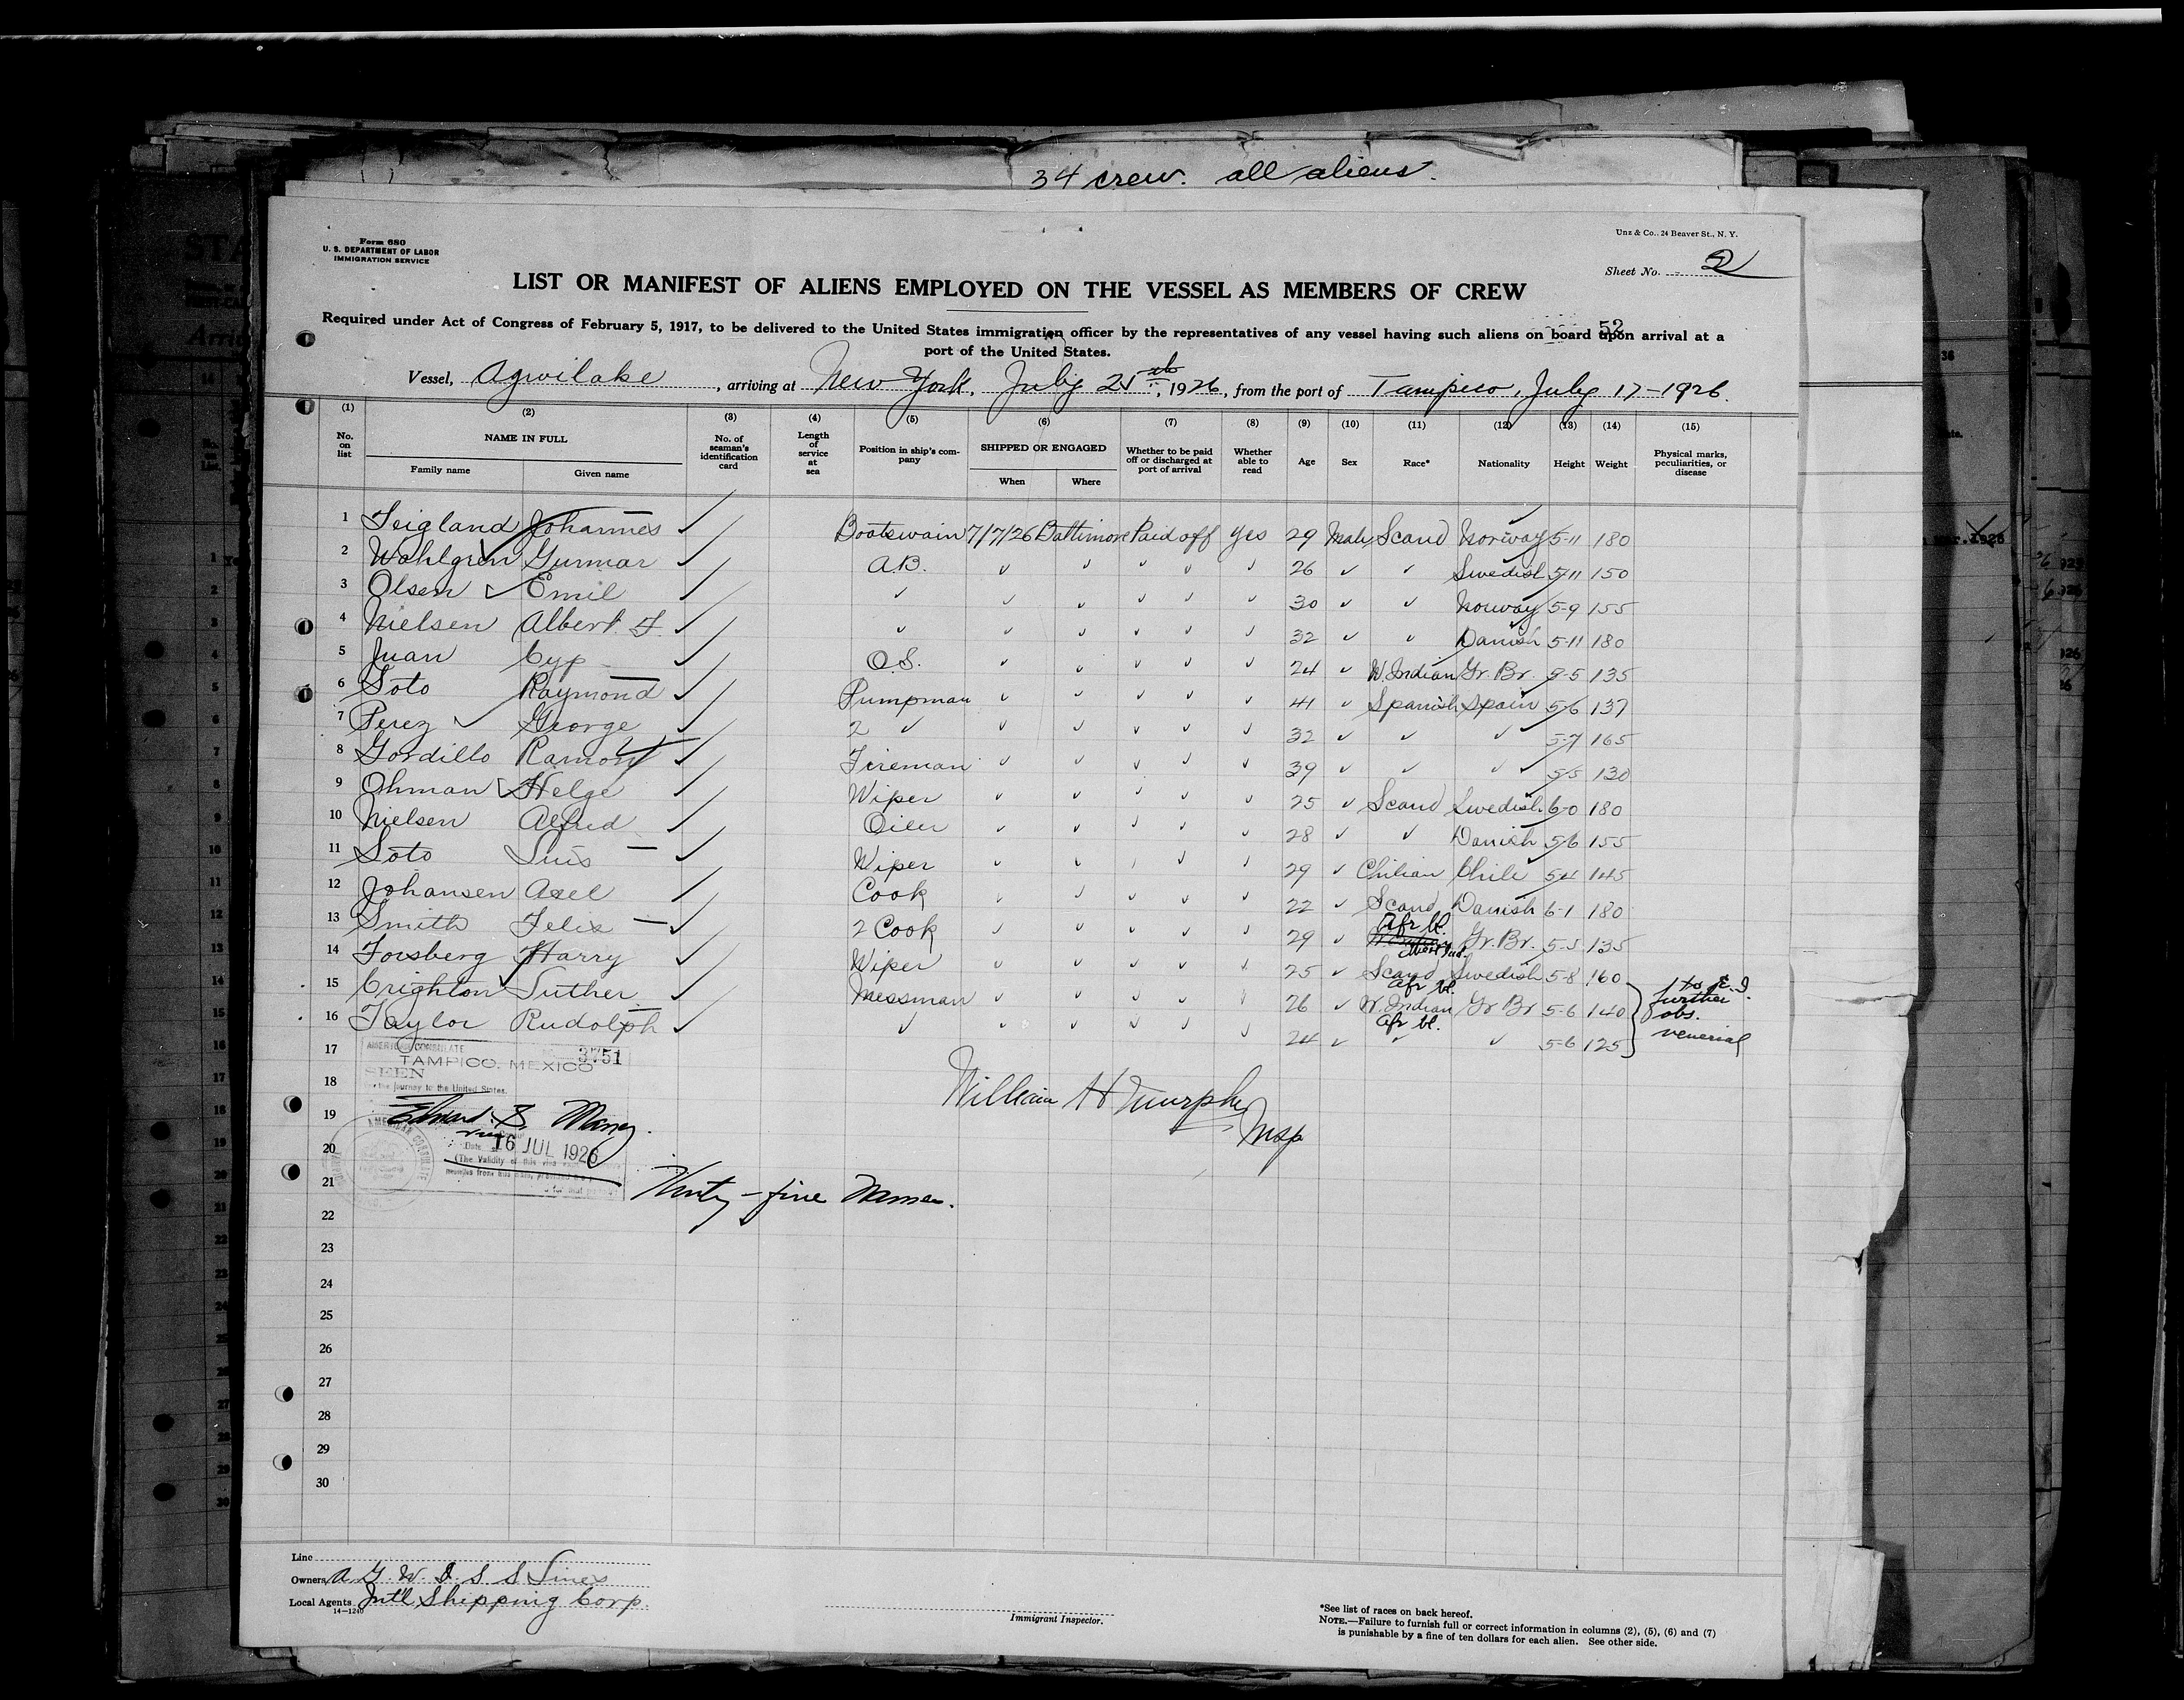 34 crew. all aliens.
Form 680
U. S. DEPARTMENT OF LABOR
IMMIGRATION SERVICE
Unz & Co., 24 Beaver St., N. Y.
Sheet No. 2
LIST OR MANIFEST OF ALIENS EMPLOYED ON THE VESSEL AS MEMBERS OF CREW
52
Required under Act of Congress of February 5, 1917, to be delivered to the United States immigration officer by the representatives of any vessel having such aliens on board upon arrival at a
port of the United States.
Vessel, Agwilake, arriving at New York, July 25th, 1926, from the port of Tampico, July 17-1926.
(1) (2) (3) (4) (5) (6) (7) (8) (9) (10) (11) (12) (13) (14) (15)
No. on list NAME IN FULL Family name Given name No. of seaman's identification card Length of service at sea Position in ship's company SHIPPED OR ENGAGED When Where Whether to be paid off or discharged at port of arrival Whether able to read Age Sex Race* Nationality Height Weight Physical marks, peculiarities, or disease
1 Teigland Johannes ✓ Bootswain 7/7/26 Baltimore Paid off yes 29 Male Scand Norway 5-11 180
2 Wahlgren Gunnar ✓ A.B. ✓ ✓ ✓ ✓ ✓ 26 ✓ ✓ Swedish 5-11 150
3 Olsen Emil ✓ ✓ ✓ ✓ ✓ ✓ ✓ 30 ✓ ✓ Norway 5-9 155
4 Nielsen Albert F. ✓ ✓ ✓ ✓ ✓ ✓ ✓ 32 ✓ ✓ Danish 5-11 180
5 Juan Cyp ✓ O.S. ✓ ✓ ✓ ✓ ✓ 24 ✓ W. Indian Gr. Br. 5-5 135
6 Soto Raymond ✓ Pumpman ✓ ✓ ✓ ✓ ✓ 41 ✓ Spanish Spain 5-6 137
7 Perez George ✓ 2 ✓ ✓ ✓ ✓ ✓ ✓ 32 ✓ ✓ ✓ 5-7 165
8 Gordillo Ramon ✓ Fireman ✓ ✓ ✓ ✓ ✓ 39 ✓ ✓ ✓ 5-5 130
9 Ohman Helge ✓ Wiper ✓ ✓ ✓ ✓ ✓ 25 ✓ Scand Swedish 6-0 180
10 Nielsen Alfred ✓ Oiler ✓ ✓ ✓ ✓ ✓ 28 ✓ ✓ Danish 5-6 155
11 Soto Luis ✓ Wiper ✓ ✓ ✓ ✓ ✓ 29 ✓ Chilian Chile 5-4 145
12 Johansen Axel ✓ Cook ✓ ✓ ✓ ✓ ✓ 22 ✓ Scand Danish 6-1 180
13 Smith Felix ✓ 2 Cook ✓ ✓ ✓ ✓ ✓ 29 ✓ Afr bl. West Ind. Gr. Br. 5-5 135
14 Forsberg Harry ✓ Wiper ✓ ✓ ✓ ✓ ✓ 25 ✓ Scand Swedish 5-8 160
15 Crighton Luther ✓ Messman ✓ ✓ ✓ ✓ ✓ 26 ✓ Afr bl. W. Indian Gr Br 5-6 140
16 Taylor Rudolph ✓ ✓ ✓ ✓ ✓ ✓ ✓ 24 ✓ Afr bl. ✓ ✓ 5-6 125
to E.I.
further
obs.
venerial
17
18
19
20
21
22
23
24
25
26
27
28
29
30
AMERICAN CONSULATE 3751
TAMPICO, MEXICO
SEEN
the journey to the United States.
Date 16 JUL 1926
(The Validity of this visa
AMERICAN CONSULATE
William H Murphy
Thirty-five Names.
Line
Owners A. G. W. I. S S Lines
Local Agents Int'l Shipping Corp.
14—1240
Immigrant Inspector.
*See list of races on back hereof.
NOTE.—Failure to furnish full or correct information in columns (2), (5), (6) and (7)
is punishable by a fine of ten dollars for each alien. See other side.